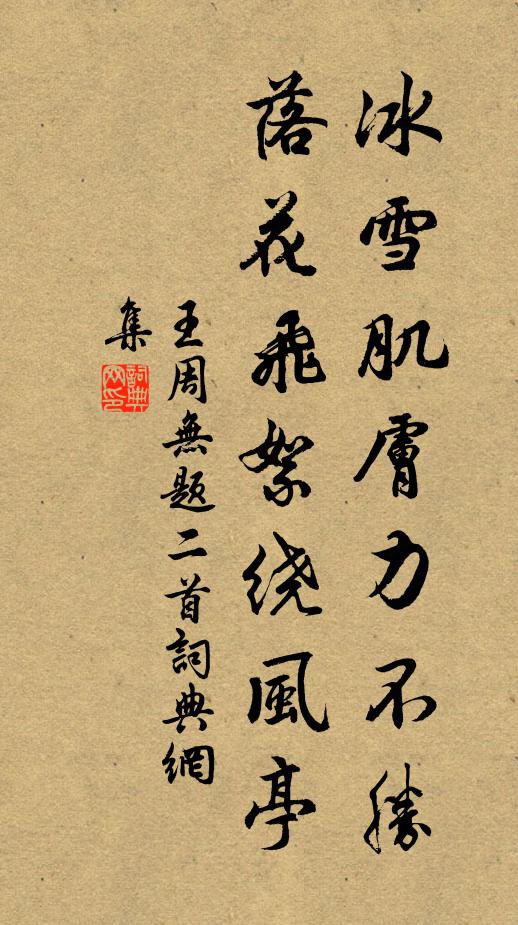 冰雪肌膚力不勝
落花飛絮绕風亭
王周無题二首詞典網
集
詞典
网印